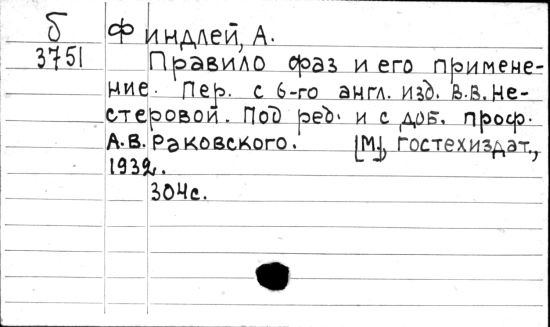 б Финдлей, А.
3751 Правило фаз и его примене-
ние. Пер. с 6-го англ. изд. В.В. Не-
стеровой. Под ред. и с доб. проф.
А.В. Раковского. [М], Гостехиздат.,
1932.
304с.